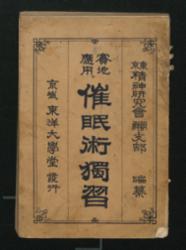 東京精神研究會朝鮮支部 編纂
實地應用 催眠術獨習
京城 東洋大學堂 發行